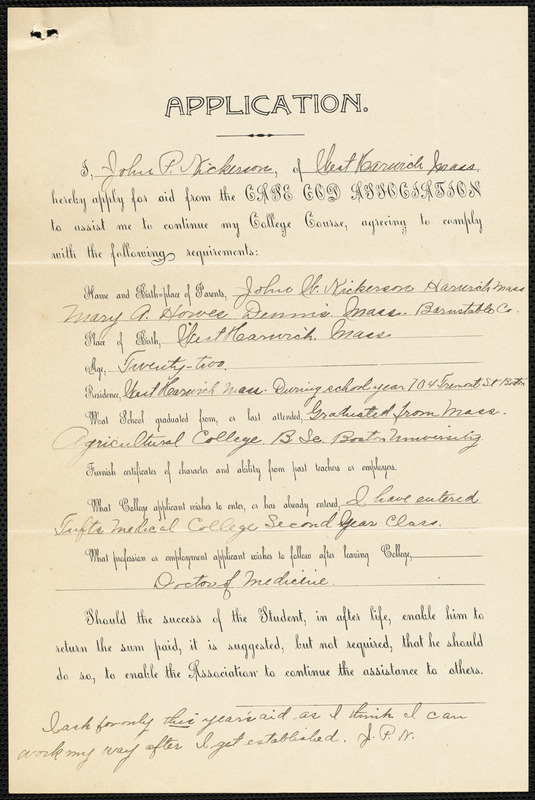 APPLICATION.
I, John P. Nickerson, of West Harwich Mass,
hereby apply for aid from the CAPE COD ASSOCIATION
to assist me to continue my College Course, agreeing to comply
with the following requirements:
Name and Birth-place of Parents, John W. Nickerson Harwich Mass
Mary A. Howes Dennis Mass. Barnstable Co.
Place of Birth, West Harwich, Mass
Age, Twenty-two.
Residence, West Harwich Mass. During school year 704 Tremont St Boston
What School graduated from, or last attended, Graduated from Mass.
Agricultural College B Sc. Boston University
Furnish certificates of character and ability from past teachers or employers.
What College applicant wishes to enter, or has already entered, I have entered
Tufts Medical College Second Year Class.
What profession or employment applicant wishes to follow after leaving College,
Doctor of Medicine.
Should the success of the Student, in after life, enable him to
return the sum paid, it is suggested, but not required, that he should
do so, to enable the Association to continue the assistance to others.
I ask for only this year's aid as I think I can
work my way after I get established. J. P. N.